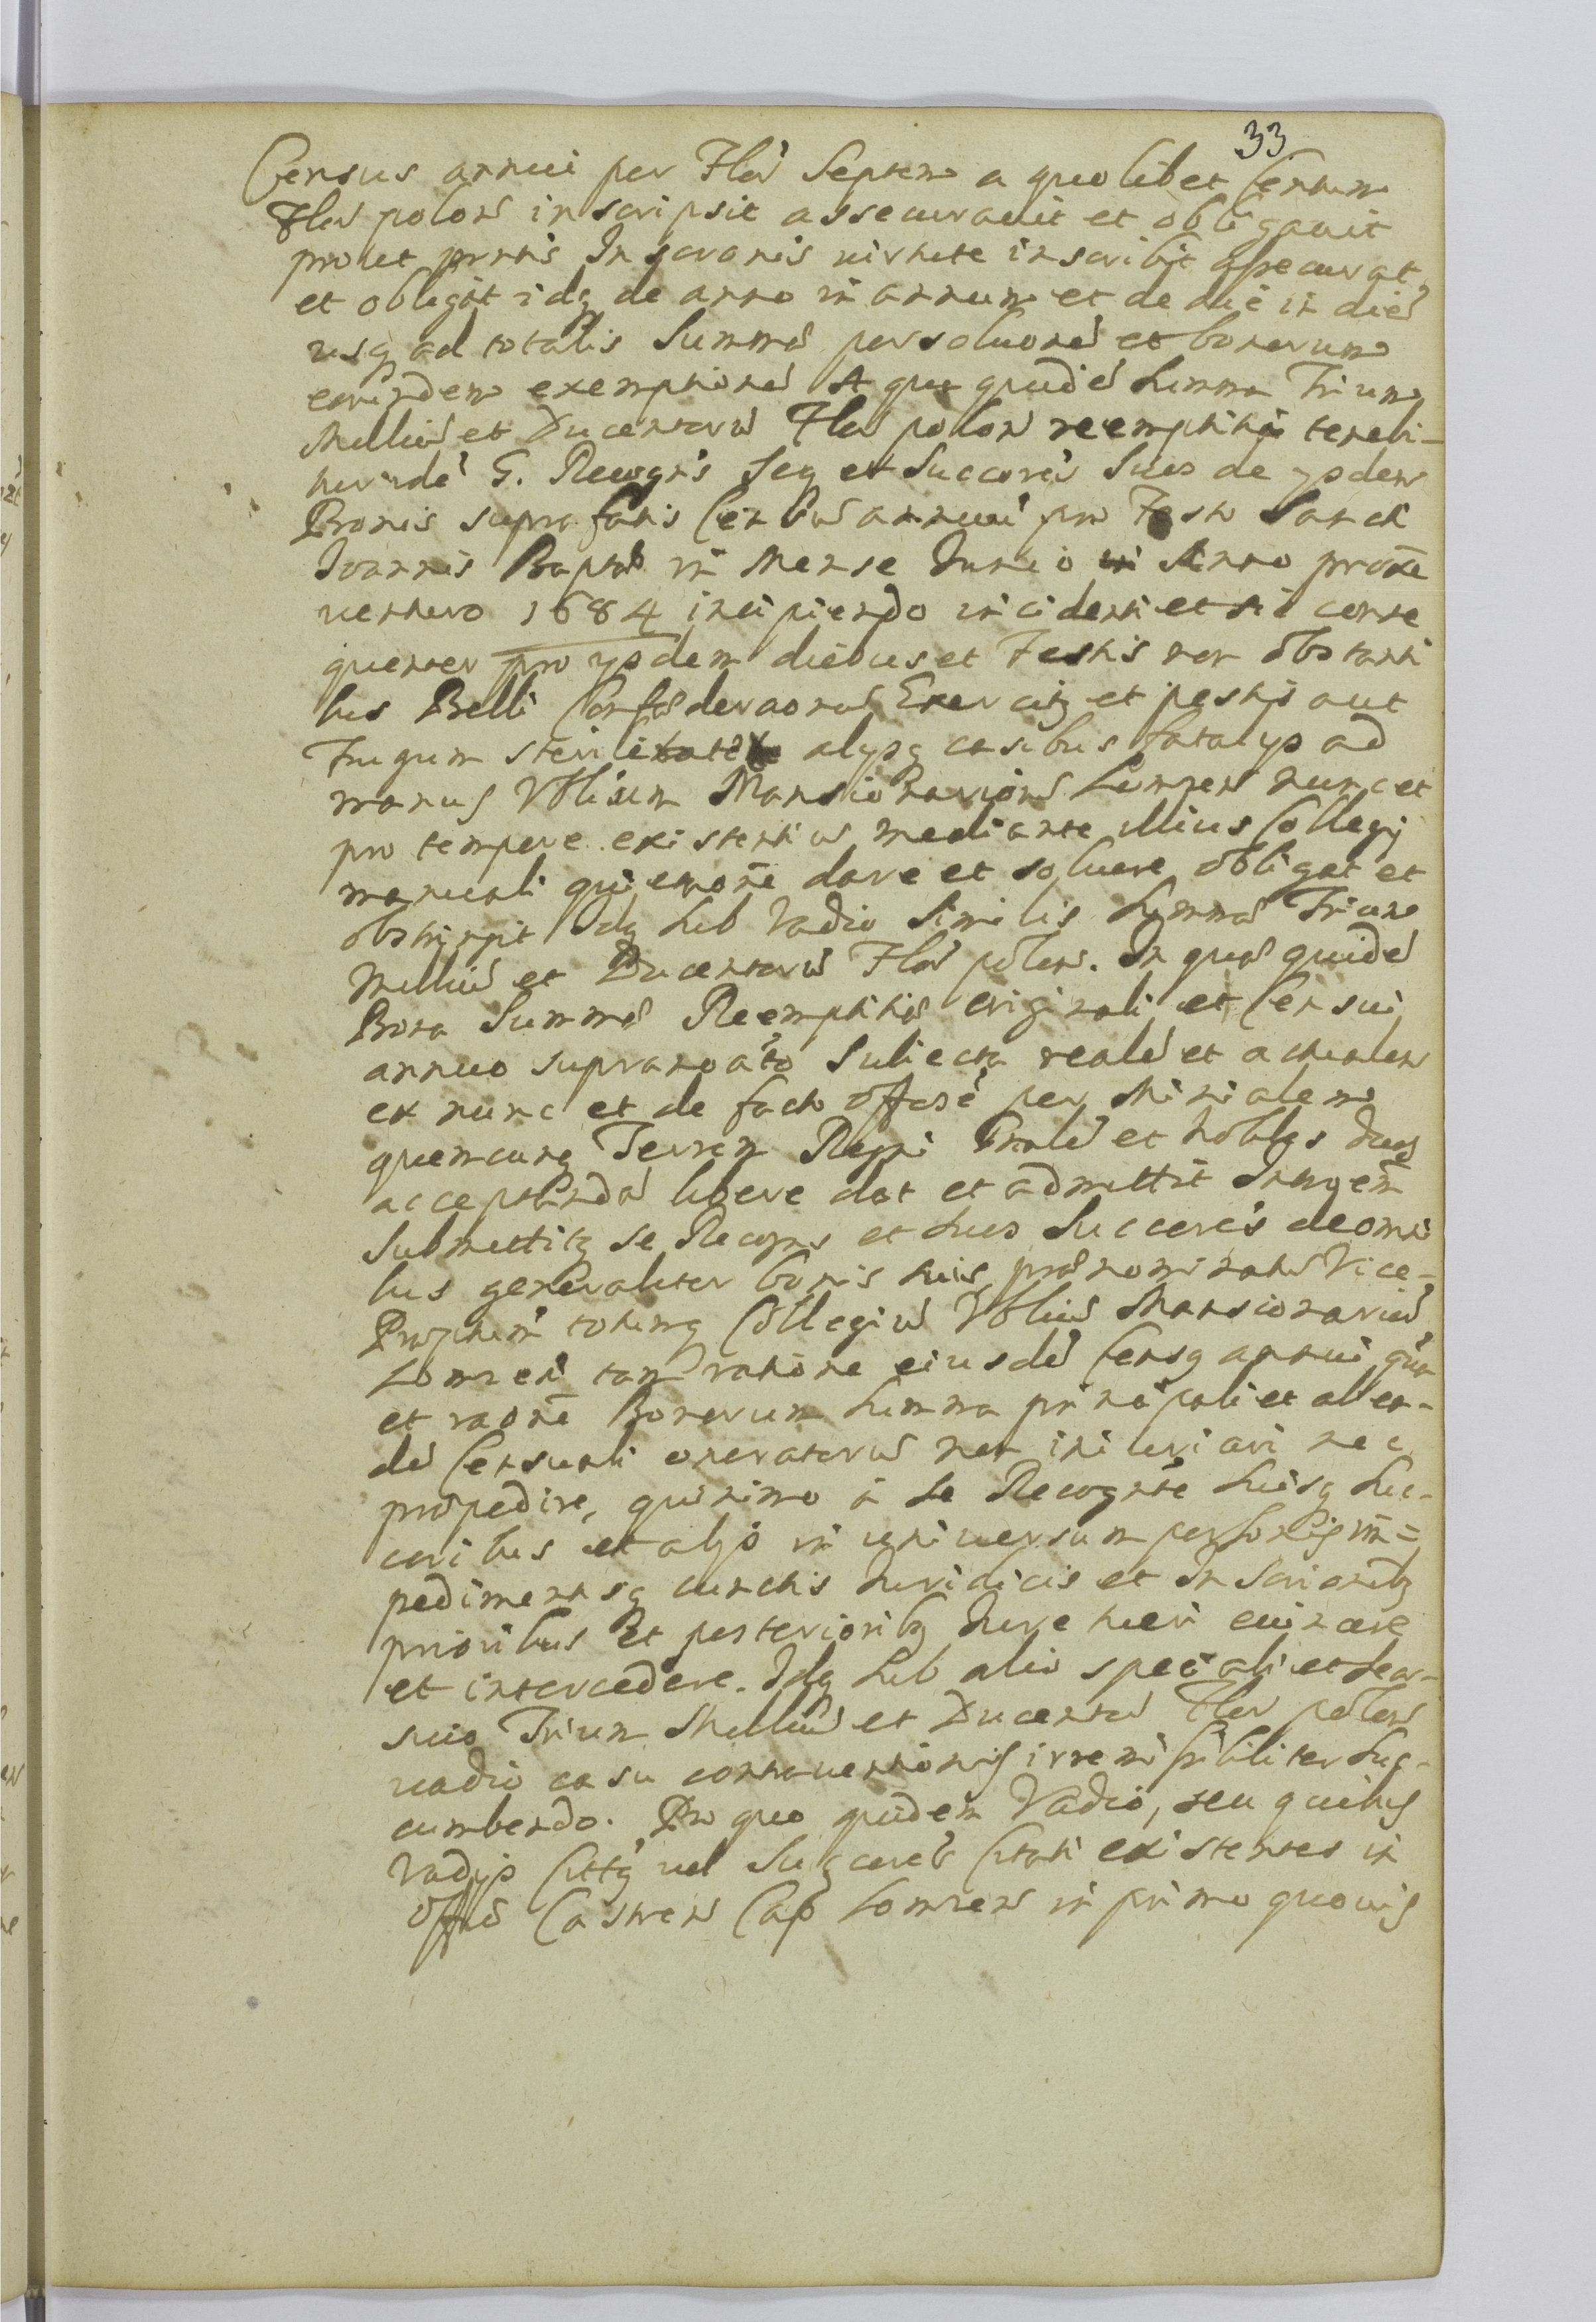 33
Census annui per Flo Septem a quolibet Centum
Flor polon inscripsit assecuravit et obligavit
prout prntis Inscronis virtute inscribit assecurat
et obligat idq de anno in annum et de die in die
usq ad totalis Summa persolutione et bonorum
eorundem exemptione A qua quide Summa Trium
Milliu et Ducentoru Flor polon reemptitia tenebi-
tur ide G. Recogns seq et Succores Suos de ysdem
Bonis suprafatis Censu annui pro Festo Sancti
Joannis Bapta in Mense Junio in Anno proxe
venturo 1684 incipiendo incidenti et sic conse
quenter pro ysdem diebus et Festis non obstanti
bus Belli Confæderaonis Exercitq et pestis aut
Frugum sterilitate alysq casibus fatalys ad
manus Vblium Mansionariorum Lomzen nunc et
pro tempore existentiu mediante illius Collegij
manuali quietaone dare et solvere obligat et
obstringit Idq sub Vadio Similis Summa Trium
Milliu et Ducentoru Flor polon. In qua quide
Bona Summa Reemptitia originali et Censui
annuo supranoato Subiecta reale et actualem
ex nunc et de facto offose per Minialem
quemcunq Terren Regni Gnale et nobles duos
acceptanda libere dat et admittit Intromn
Submittitq se Recogns et suos Succores de omni
bus generaliter bonis suis prænominatu Vice-
Præptum totumq Collegiu Vbliu Mansionariu
Lomzen tam ratione eiusde Censq annui qua
et raone Bonorum Summa principali et aliqn-
do Censuali oneratoru non iniuriari nec
præpedire, quinimo a se Recognte Suisq Suc-
coribus et alijs in universum personis im=
pedimentsq cunctis Juridicis et Inscrionibq
prioribus et posterioribq Jure tueri evincere
et intercedere. Idq sub alio speciali et Sear-
suo Trium Milliu et Ducentoru Flor polon
vadio casu contraventionis irremissibiliter Suc-
cumbendo. Pro quo quidem Vadio, seu quibus
Vadijs Cittq vel Succores Citati existentes in
Offo Castren Cap Lomzen in primo quovis